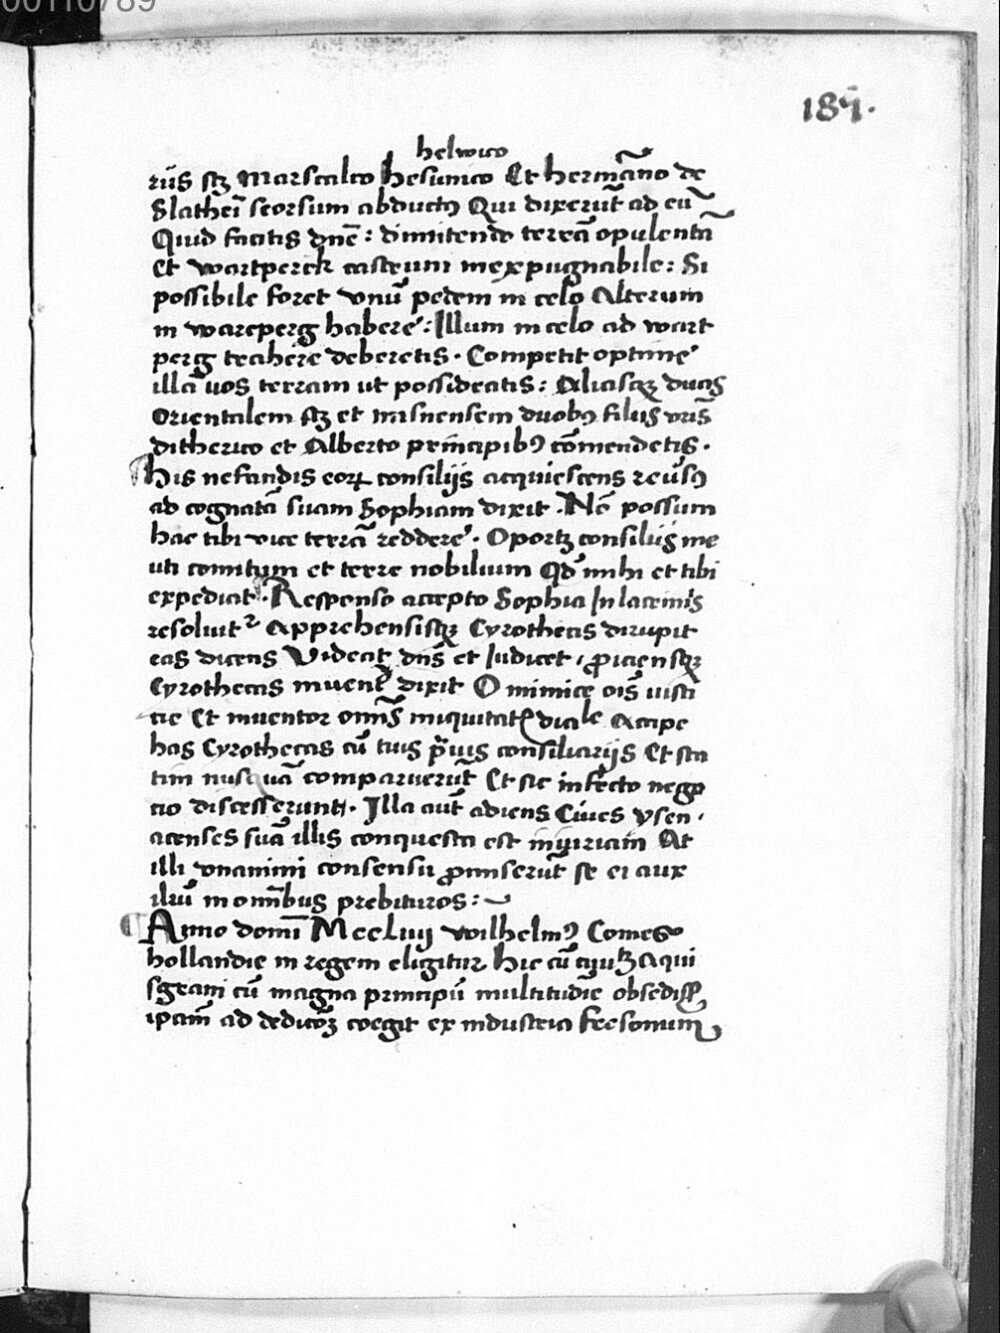 00110789
185.
helwico
riis scz Marscalco hesunico Et hermāno de
Slathei seorsum abductꝰ Qui dixerūt ad eū
Quid facitis dn̄e : dimittendo terrā opulentā
Et wartperck castrum inexpugnabile : Si
possibile foret vnū pedem in celo Alterum
in wartperg habere : Illum in celo ad wart
perg trahere deberetis . Competit optime
illā vos terram ut possideatis : Aliasqꝫ duas
Orientalem scz et misnensem duobꝰ filiis vr̄is
ditherico et Alberto principibꝰ cōmendetis .
his nefandis eoꝝ consiliis acquiescens reūsꝰ
ad cognatā suam Sophiam dixit . Nō possum
hac tibi vice terrā reddere . Oportꝫ consiliis me
uti comitum et terre nobilium Qd mihi et tibi
expediat . Responso accepto Sophia In lacrimis
resoluit Apprehensisqꝫ Cyrothecis dirupit
eas dicens Videat dn̄s et Iudicet , ꝓiciensqꝫ
Cyrothecas dixit O inimice ois iusti
cie Et inuentor omīs iniquitatꝭ Accipe
has Cyrothecas cū tuis p̄uis consiliariis Et sta
tim nusquā comparuerūt Et sic infecto nego
cio discesserunt . Illa aūt adiens Ciues ysen
acenses suā illis conquesta est iniuriam At
illi vnanimi consensu ꝓmiserūt se ei aux
iliū in omībus prebituros :
Anno domī MccLiiij wilhelmꝰ Comes
hollandie in regem eligitur hic cū Aqui
sgrani cū magna principū multitudīe
ipam̄ ad coegit ex industria fresonum